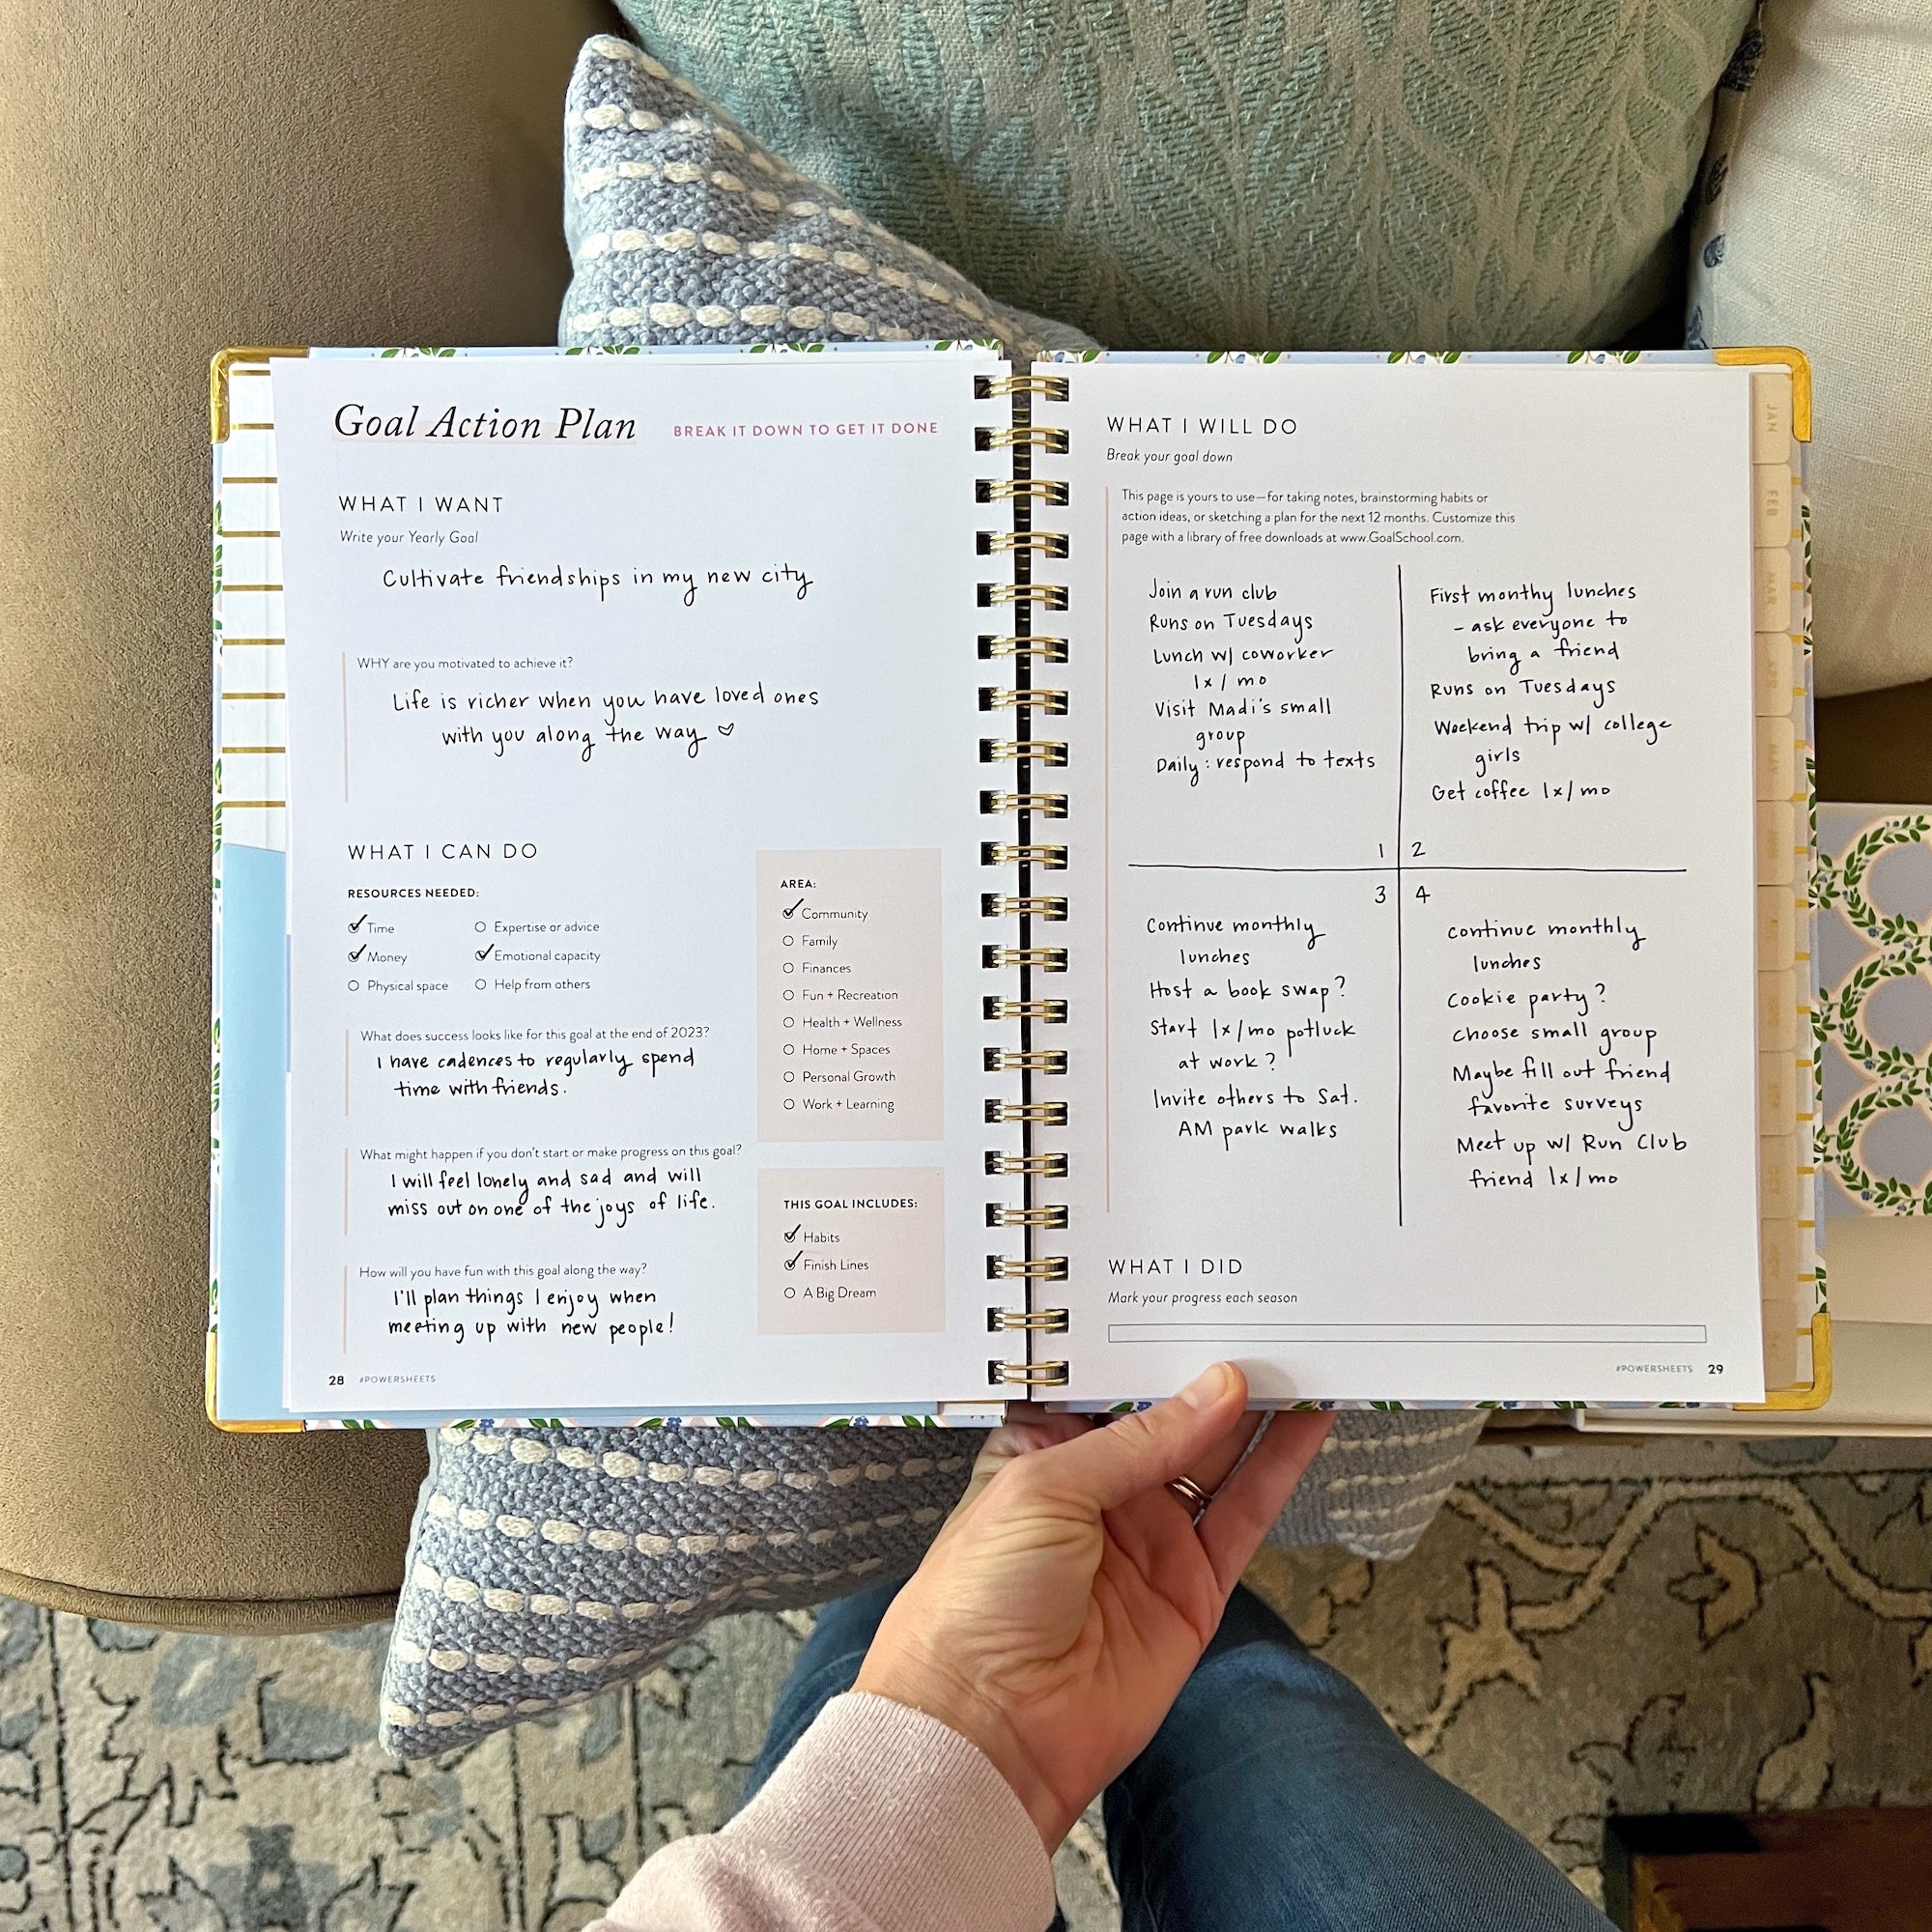 Goal Action Plan BREAK IT DOWN TO GET IT DONE
WHAT I WANT
Write your Yearly Goal
Cultivate friendships in my new city
WHY are you motivated to achieve it?
Life is richer when you have loved ones
with you along the way ♡
WHAT I CAN DO
RESOURCES NEEDED:
Time
Money
Physical space
Expertise or advice
Emotional capacity
Help from others
What does success looks like for this goal at the end of 2023?
I have cadences to regularly spend
time with friends.
What might happen if you don't start or make progress on this goal?
I will feel lonely and sad and will
miss out on one of the joys of life.
How will you have fun with this goal along the way?
I'll plan things I enjoy when
meeting up with new people!
AREA:
Community
Family
Finances
Fun + Recreation
Health + Wellness
Home + Spaces
Personal Growth
Work + Learning
THIS GOAL INCLUDES:
Habits
Finish Lines
A Big Dream
28 #POWERSHEETS
WHAT I WILL DO
Break your goal down
This page is yours to use—for taking notes, brainstorming habits or
action ideas, or sketching a plan for the next 12 months. Customize this
page with a library of free downloads at www.GoalSchool.com.
Join a run club
Runs on Tuesdays
Lunch w/ coworker
1x/mo
Visit Madi's small
group
Daily: respond to texts
1
First monthy lunches
- ask everyone to
bring a friend
Runs on Tuesdays
Weekend trip w/ college
girls
Get coffee 1x/mo
2
3
Continue monthly
lunches
Host a book swap?
Start 1x/mo potluck
at work?
Invite others to Sat.
AM park walks
4
continue monthly
lunches
Cookie party?
Choose small group
Maybe fill out friend
favorite surveys
Meet up w/ Run Club
friend 1x/mo
WHAT I DID
Mark your progress each season
#POWERSHEETS 29
JAN
FEB
MAR